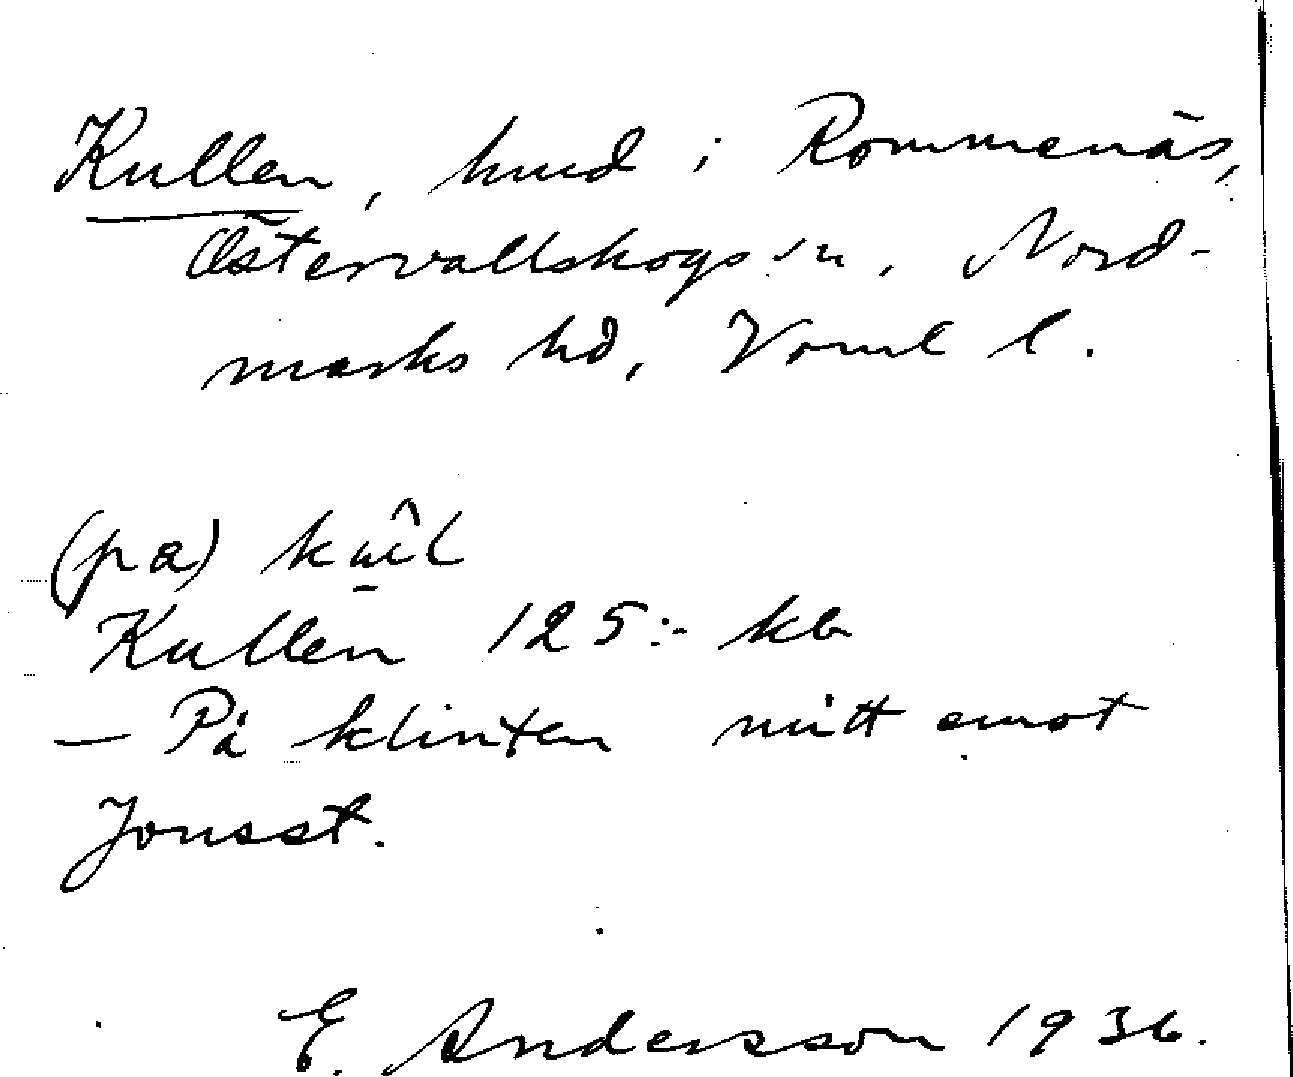 Kullen, hmd i Rommenäs,
Östervallskogs sn, Nord-
marks hd, Verml l.
(pa)
Kullen 125:- kb
— På klinten mitt emot
Jonsst.
E. Andersson 1936.